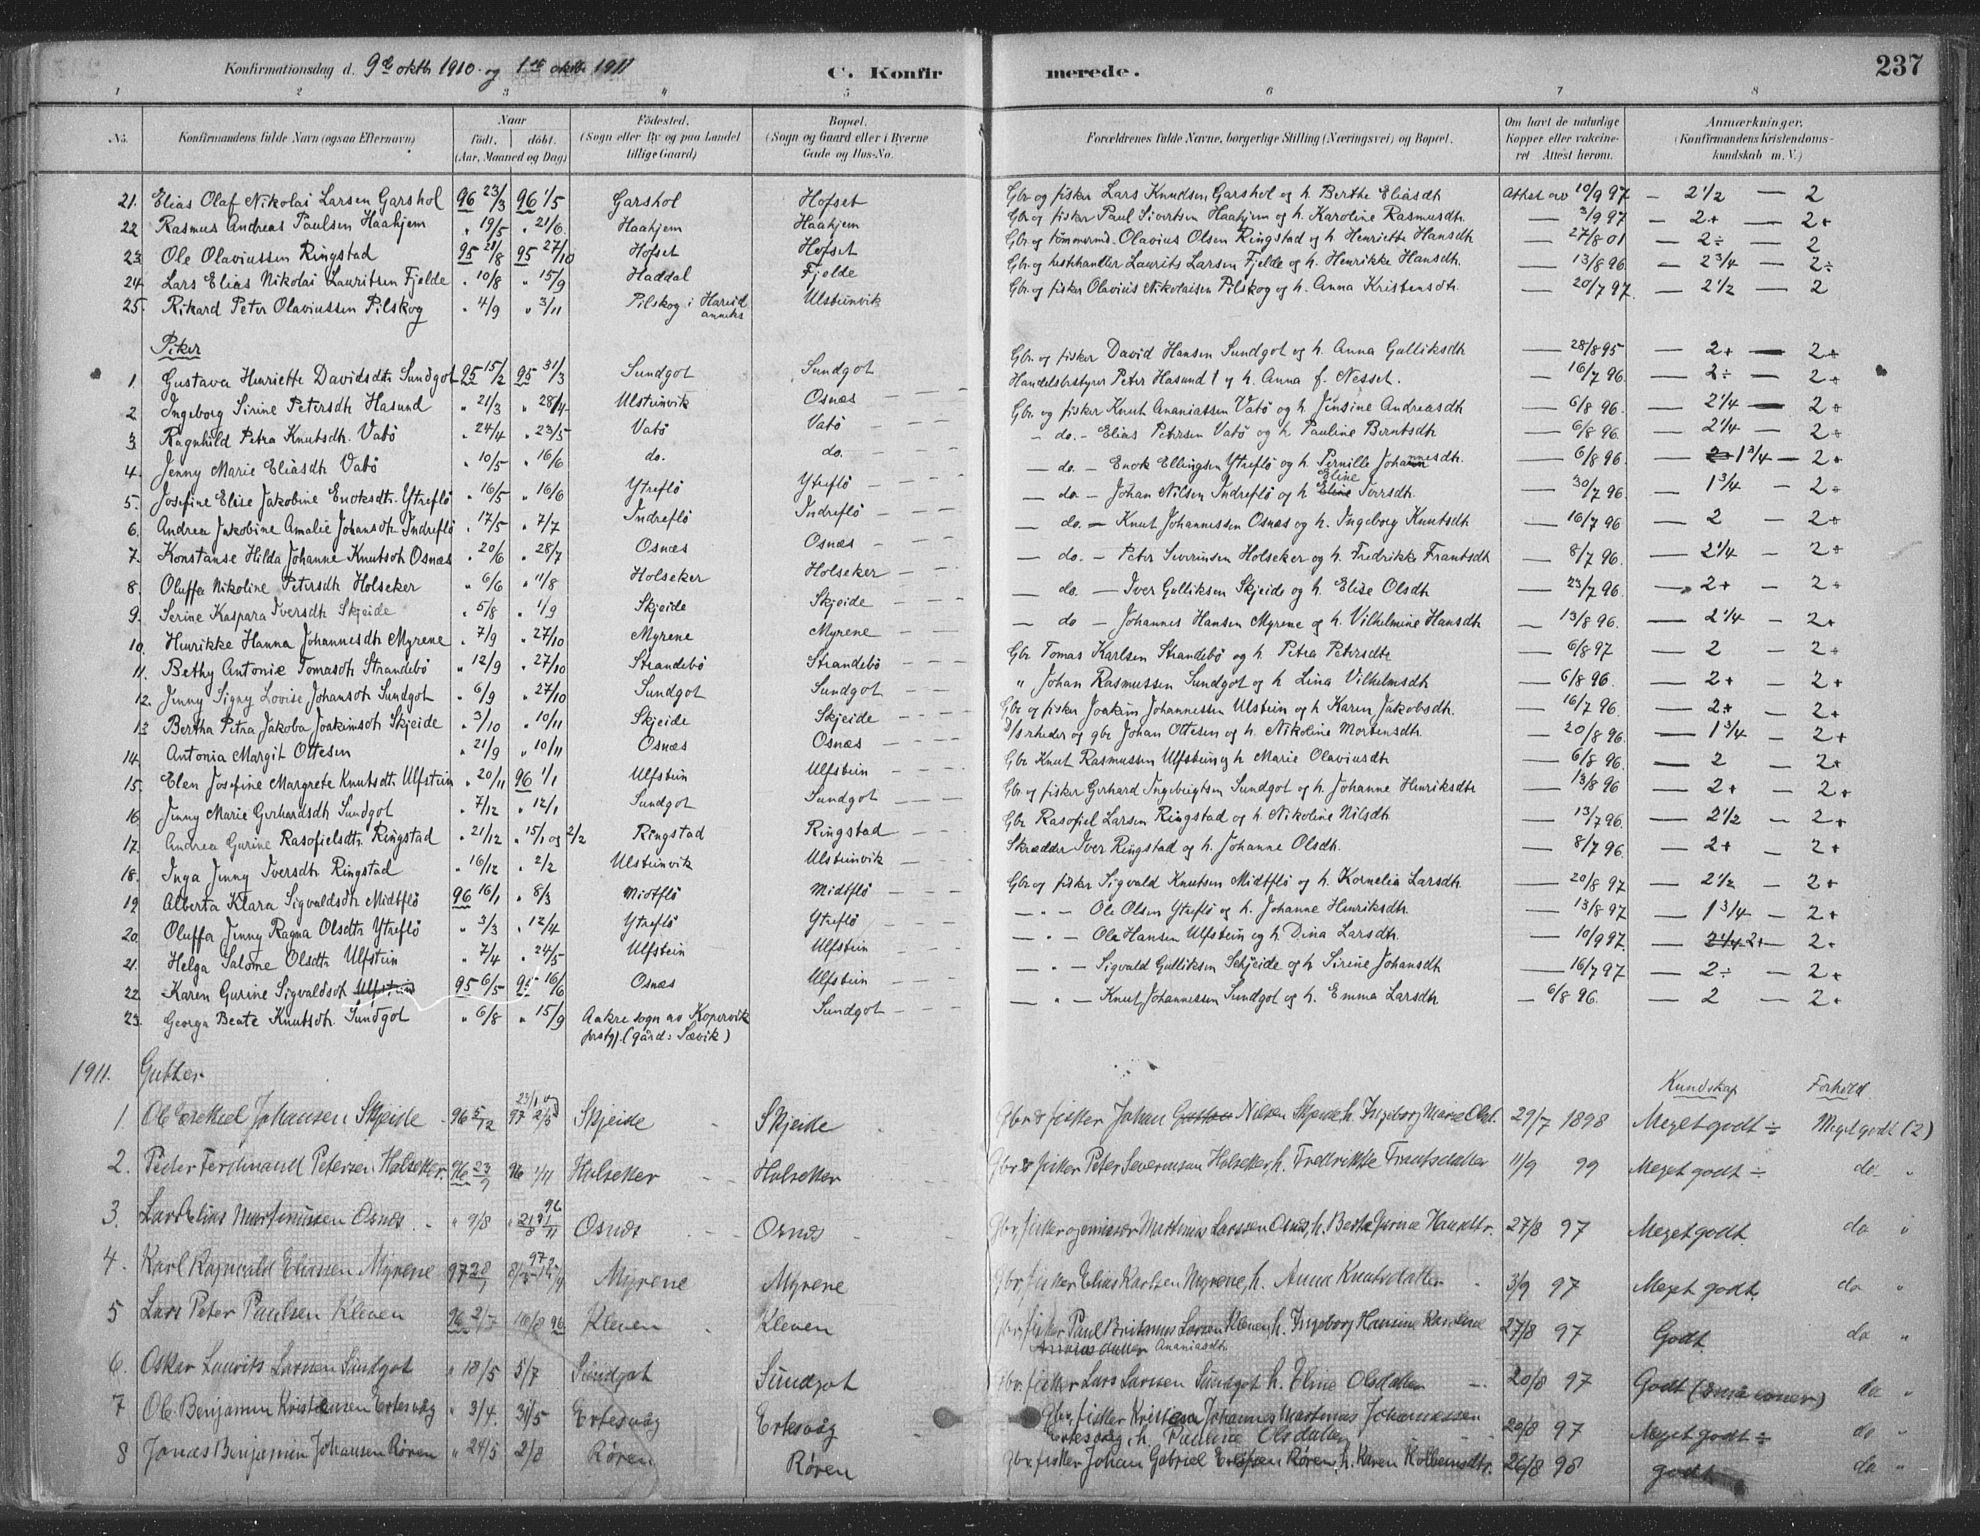 Konfirmationsdag d. 9de oktbr 1910. og 1ste oktbr 1911 C. Konfirmerede. 237
1 2 3 4 5 6 7 8
No. Konfirmandens fulde Navn (ogsaa Efternavn) Naar født. døbt. (Aar, Maaned og Dag) Fødested. (Sogn eller By og paa Landet tillige Gaard) Bopæl. (Sogn og Gaard eller i Byerne Gade og Hus-No. Forældrenes fulde Navne, borgerlige Stilling (Næringsvei) og Bopæl. Om havt de naturlige Kopper eller vakcineret Attest herom. Anmærkninger. (Konfirmandens Kristendomskundskab m. V.)
21. Elias Olaf Nikolai Larsen Garshol 96 23/3 96 1/5 Garshol Hofset Gbr og fisker Lars Knudsen Garshol og h. Berthe Eliasdtr Attest av 10/9 97 — 2 1/2 — 2
22 Rasmus Andreas Paulsen Haahjem " 19/5 " 21/6 Haahjem Haahjem Gbr og fisker Paul Sivertsen Haahjem og h. Karoline Rasmusdtr. — 3/9 97 — 2+ — 2+
23. Ole Olaviussen Ringstad 95 28/8 95 27/10 Hofset Hofset Gbr og tømmermd. Olavius Olsen Ringstad og h. Henriette Hansdtr — 27/8 01 — 2÷ — 2
24. Lars Elias Nikolai Lauritsen Fjelde " 10/8 " 15/9 Haddal Fjelde Gbr. og hestehandler Laurits Larsen Fjelde og h. Henrikke Hansdtr. — 13/8 96. — 2 3/4 — 2÷
25. Rikard Peter Olaviussen Pilskog " 4/9 " 3/11 Pilskog i Hareid anneks Ulsteinvik Gbr. og fisker Olavius Nikolaisen Pilskog og h. Anna Kristensdtr. — 20/7 97. — 2 1/2 — 2
Piker
1. Gustava Henriette Davidsdtr Sundgot 95 15/2 95 31/3 Sundgot Sundgot Gbr. og fisker David Hansen Sundgot og h. Anna Gulliksdtr — 28/8 95 — 2+ — 2+
2. Ingeborg Sirine Petersdtr Hasund " 21/3 " 28/4 Ulsteinvik Osnæs Handelsbestyrer Peter Hasund † og h. Anna f. Nesset. — 16/7 96. — 2÷ — 2+
3. Ragnhild Petra Knutsdtr. Vatø " 24/4 " 23/5 Vatø Vatø Gbr. og fisker Knut Ananiassen Vatø og h. Jensine Andreasdtr — 6/8 96. — 2 1/4 — 2+
4. Jenny Marie Eliasdtr Vatø " 10/5 " 16/6 do. do. — do. — Elias Petersen Vatø og h. Pauline Berntsdtr — 6/8 96. — 2 1/4 — 2+
5. Josefine Elise Jakobine Enoksdtr. Ytreflø " 16/5 " 16/6 Ytreflø Ytreflø — do. — Enok Ellingsen Ytreflø og h. Pernille Johannesdtr. — 6/8 96. — 2 1 3/4 — 2+
6. Andrea Jakobine Amalie Johansdtr Indreflø " 17/5 " 7/7 Indreflø Indreflø — do — Johan Nilsen Indreflø og h. Eline Iversdtr. — 30/7 96. — 1 3/4 — 2+
7. Konstanse Hilda Johanne Knutsdtr Osnæs " 20/6 " 28/7 Osnæs Osnæs — do. — Knut Johannessen Osnæs og h. Ingeborg Knutsdtr — 16/7 96 — 2 — 2+
8. Oluffa Nikoline Petersdtr Holseker " 6/6 " 11/8 Holseker Holseker — do. — Peter Severinsen Holseker og h. Fredrikke Frantsdtr — 8/7 96. — 2 1/4 — 2+
9. Serine Kaspara Iversdtr Skjeide " 5/8 " 1/9 Skjeide Skjeide — do. — Iver Gulliksen Skjeide og h. Elise Olsdtr — 23/7 96. — 2+ — 2+
10. Henrikke Hanna Johannesdtr Myrene " 7/9 " 27/10 Myrene Myrene — do — Johannes Hansen Myrene og h. Vilhelmine Hansdtr — 13/8 96. — 2 1/4 — 2+
11. Bethy Antonie Tomasdtr Strandebø " 12/9 " 27/10 Strandebø Strandebø Gbr Tomas Karlsen Strandebø og h. Petra Petersdtr — 6/8 97 — 2 — 2+
12. Jenny Signy Lovise Johansdtr Sundgot " 6/9 " 27/10 Sundgot Sundgot " Johan Rasmussen Sundgot og h. Lina Vilhelmsdtr — 6/8 96. — 2+ — 2+
13 Bertha Petra Jakoba Joakimsdtr Skjeide " 3/10 " 10/11 Skjeide Skjeide Gbr og fisker Joakim Johannessen Ulstein og h. Karen Jakobsdtr. — 16/7 96 — 2+ — 2+
14. Antonia Margit Ottesen " 21/9 " 10/11 Osnæs Osnæs D/srheder og gbr Johan Ottesen og h. Nikoline Mortensdtr — 20/8 96. — 1 3/4 — 2+
15. Elen Josefine Margrete Knutsdtr Ulfstein " 20/11 96 1/1 Ulfstein Ulfstein Gbr Knut Rasmussen Ulfstein og h. Marie Olaviusdtr — 6/8 96. — 2 — 2+
16 Jenny Marie Gerhardsdtr Sundgot " 7/12 " 12/1 Sundgot Sundgot Gbr. og fisker Gerhard Ingebrigtsen Sundgot og h. Johanne Henriksdtr — 13/8 96 — 2+ — 2+
17. Andrea Gurine Rasofielsdtr. Ringstad " 21/12 " 15/1 og 2/2 Ringstad Ringstad Gbr Rasofiel Larsen Ringstad og h. Nikoline Nilsdtr — 13/7 96. — 2 1/2 — 2+
18. Inga Jenny Iversdtr Ringstad " 16/12 " 2/2 Ulsteinvik Ulsteinvik Skrædder Iver Ringstad og h. Johanne Olsdtr. — 8/7 96. — 2+ — 2+
19. Alberta Klara Sigvaldsdtr Midtflø 96 16/1 " 8/3 Midtflø Midtflø Gbr. og fisker Sigvald Knutsen Midtflø og h. Kornelia Larsdtr — 20/8 97 — 2 1/2 — 2+
20. Oluffa Jenny Ragna Olsdtr Ytreflø " 3/3 " 12/4 Ytreflø Ytreflø — " — Ole Olsen Ytreflø og h. Johanne Henriksdtr. — 13/8 97 — 1 3/4 — 2+
21. Helga Salome Olsdtr Ulfstein " 7/4 " 24/5 Ulfstein Ulfstein — " — Ole Hansen Ulfstein og h. Dina Larsdtr. — 10/9 97. — 2 1/4 2+ — 2+
22. Karen Gurine Sigvaldsdtr Ulfstein 95 6/5 95 16/6 Osnæs Ulfstein — " — Sigvald Gulliksen Schjeide og h. Sirine Johansdtr — 16/7 97 — 2÷ — 2+
23. Georga Beate Knutsdtr. Sundgot " 6/8 " 15/9 Aakre sogn av Kopervik prstgj. (gård: Sævik) Sundgot — " — Knut Johannessen Sundgot og h. Emma Larsdtr — 6/8 96. — 2 — 2+
1911. Gutter. Kundskap Forhold
1 Ole Esekiel Johansen Skjeide 96 5/12 97 23/1 og 2/5 Skjeide Skjeide Gbr & fisker Johan Gustav Nilsen Skjeide h. Ingeborg Marie Olsd. 29/7 1898 Meget godt ÷ Meget godt (2)
2. Peter Ferdinand Petersen Holseker. 96 23/9 96 1/11 Holseker Holseker Gbr & fisker Peter Severinsen Holseker, h. Fredrikke Frantsdatter 11/9 99 Meget godt ÷ do "
3. Lars Elias Martinussen Osnes. " 9/8 " 21/8 96 1/11 Osnes Osnes Gbr, fisker og emissær Martinus Larsen Osnes, h. Berte Gurine Hansdtr. 27/8 97 Meget godt. do "
4. Karl Ragnvald Eliassen Myrene 97 Myrene Myrene Gbr, fisker Elias Karlsen Myrene, h. Anna Knutsdatter 3/9 97 Meget godt. do "
5 Lars Peter Paulsen Kleven 96 2/7 16/8 96 Kleven Kleven Gbr, fisker Paul Britanus Larsen Kleven, h. Ingeborg Hansine Karoline Ananiasdtr 27/8 97 Godt. do "
6. Oskar Laurits Larssen Sundgot " 18/5 5/7 Sundgot Sundgot Gbr. fisker Lars Larssen Sundgot h. Eline Olsdatter 20/8 97 Godt do "
7 Ole Benjamin Kristensen Ertesvåg " 3/4. 31/5 Ertesvåg Ertesvåg Gbr, fisker Kristen Johannes Martinus Johannessen Ertesvåg, h. Pauline Olsdatter 20/8 97 Meget godt ÷ do "
8 Jonas Benjamin Johansen Røren " 24/5 2/8 Røren Røren Gbr. fisker Johan Gabriel Røren, h. Karen Kolbeinsdtr. 26/8 98 godt do "